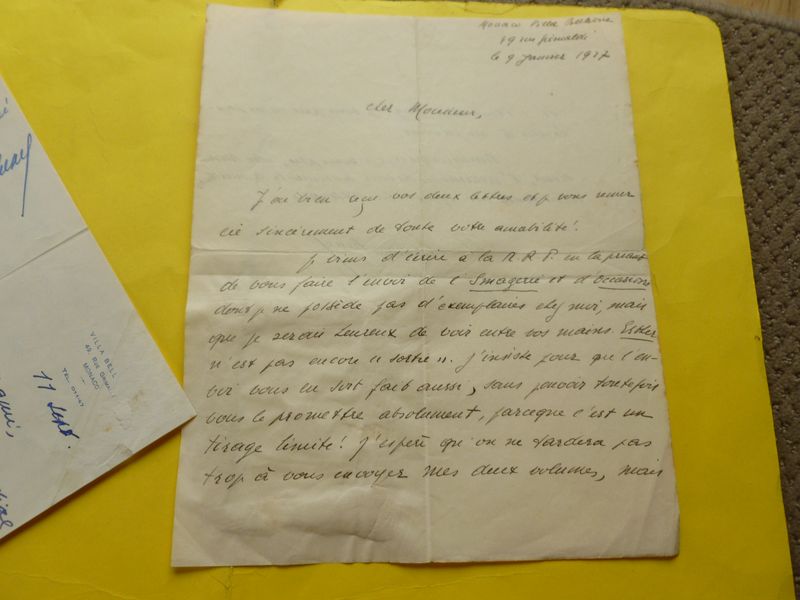 Monaco Villa Bellevue
49 rue Grimaldi
le 9 janvier 1937
Cher Monsieur,
J'ai bien reçu vos deux lettres et je vous remer
cie sincèrement de toute votre amabilité!
Je viens d'écrire à la N.R.F. en la priant
de vous faire l'envoi de l'Imagerie et d'Occasions
dont je ne possède pas d'exemplaires chez moi, mais
que je serais heureux de voir entre vos mains. Esther
n'est pas encore "sortie". J'insiste pour que l'en-
voi vous en soit fait aussi, sans pouvoir toutefois
vous le promettre absolument, parceque c'est un
tirage limité! J'espère qu'on ne tardera pas
trop à vous envoyer mes deux volumes, mais
VILLA BELL
MONACO
11 Sept.